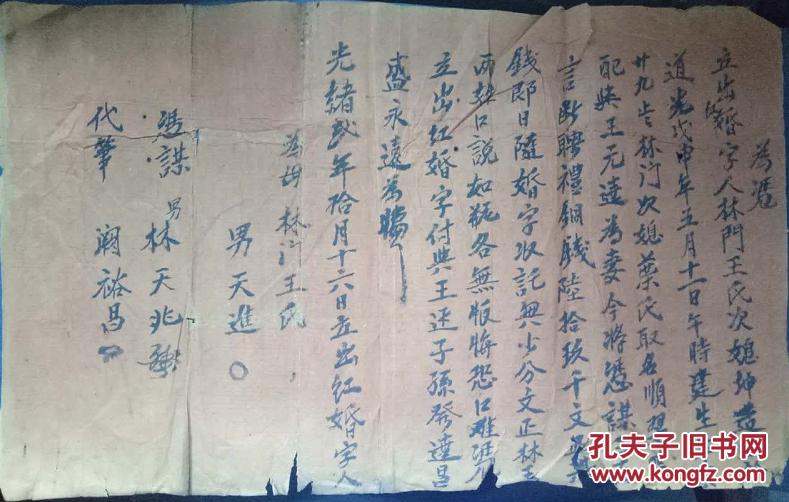 為憑
立出婚字人林門王氏次媳坤造
道光戊申年五月十一日午時建生
廿九岁林门次媳葉氏取名順
配與王元達為妻今將憑謀
言断聘禮銅錢陸拾玖千文
錢即日隨婚字收訖無少分文正林王
两姓口說如瓶各無恢悔恐口难憑
立出红婚字付與王还子孫發達昌
盛永遠為照
光緒贰年拾月十六日立出红婚字人
林门王氏
男天進
憑謀 男林天兆
代筆 阙裕昌
孔夫子旧书网
www.kongfz.com